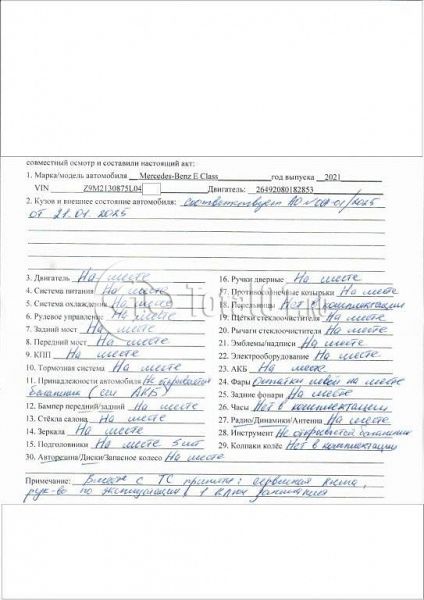 совместный осмотр и составили настоящий акт:
1. Марка/модель автомобиля Mercedes-Benz E Class год выпуска 2021
VIN Z9M2130875L04 Двигатель: 26492080182853
2. Кузов и внешнее состояние автомобиля: соответствует АО №
от 21.01.2025
3. Двигатель На месте
4. Система питания На месте
5. Система охлаждения На месте
6. Рулевое управление На месте
7. Задний мост На месте
8. Передний мост На месте
9. КПП На месте
10. Тормозная система На месте
11. Принадлежности автомобиля Не открывается
багажник (сел АКБ)
12. Бампер передний/задний На месте
13. Стёкла салона На месте
14. Зеркала На месте
15. Подголовники На месте 5 шт
16. Ручки дверные На месте
17. Противосолнечные козырьки На месте
18. Пепельницы Нет в комплектации
19. Щётки стеклоочистителя На месте
20. Рычаги стеклоочистителя На месте
21. Эмблемы/надписи На месте
22. Электрооборудование На месте
23. АКБ На месте
24. Фары на месте
25. Задние фонари На месте
26. Часы Нет в комплектации
27. Радио/Динамики/Антенна На месте
28. Инструмент Не открывается багажник
29. Колпаки колёс Нет в комплектации
30. Авторезина/Диски/Запасное колесо На месте
Примечание: Вместе с ТС приняты: сервисная книга,
рук-во по эксплуатации и 1 ключ зажигания